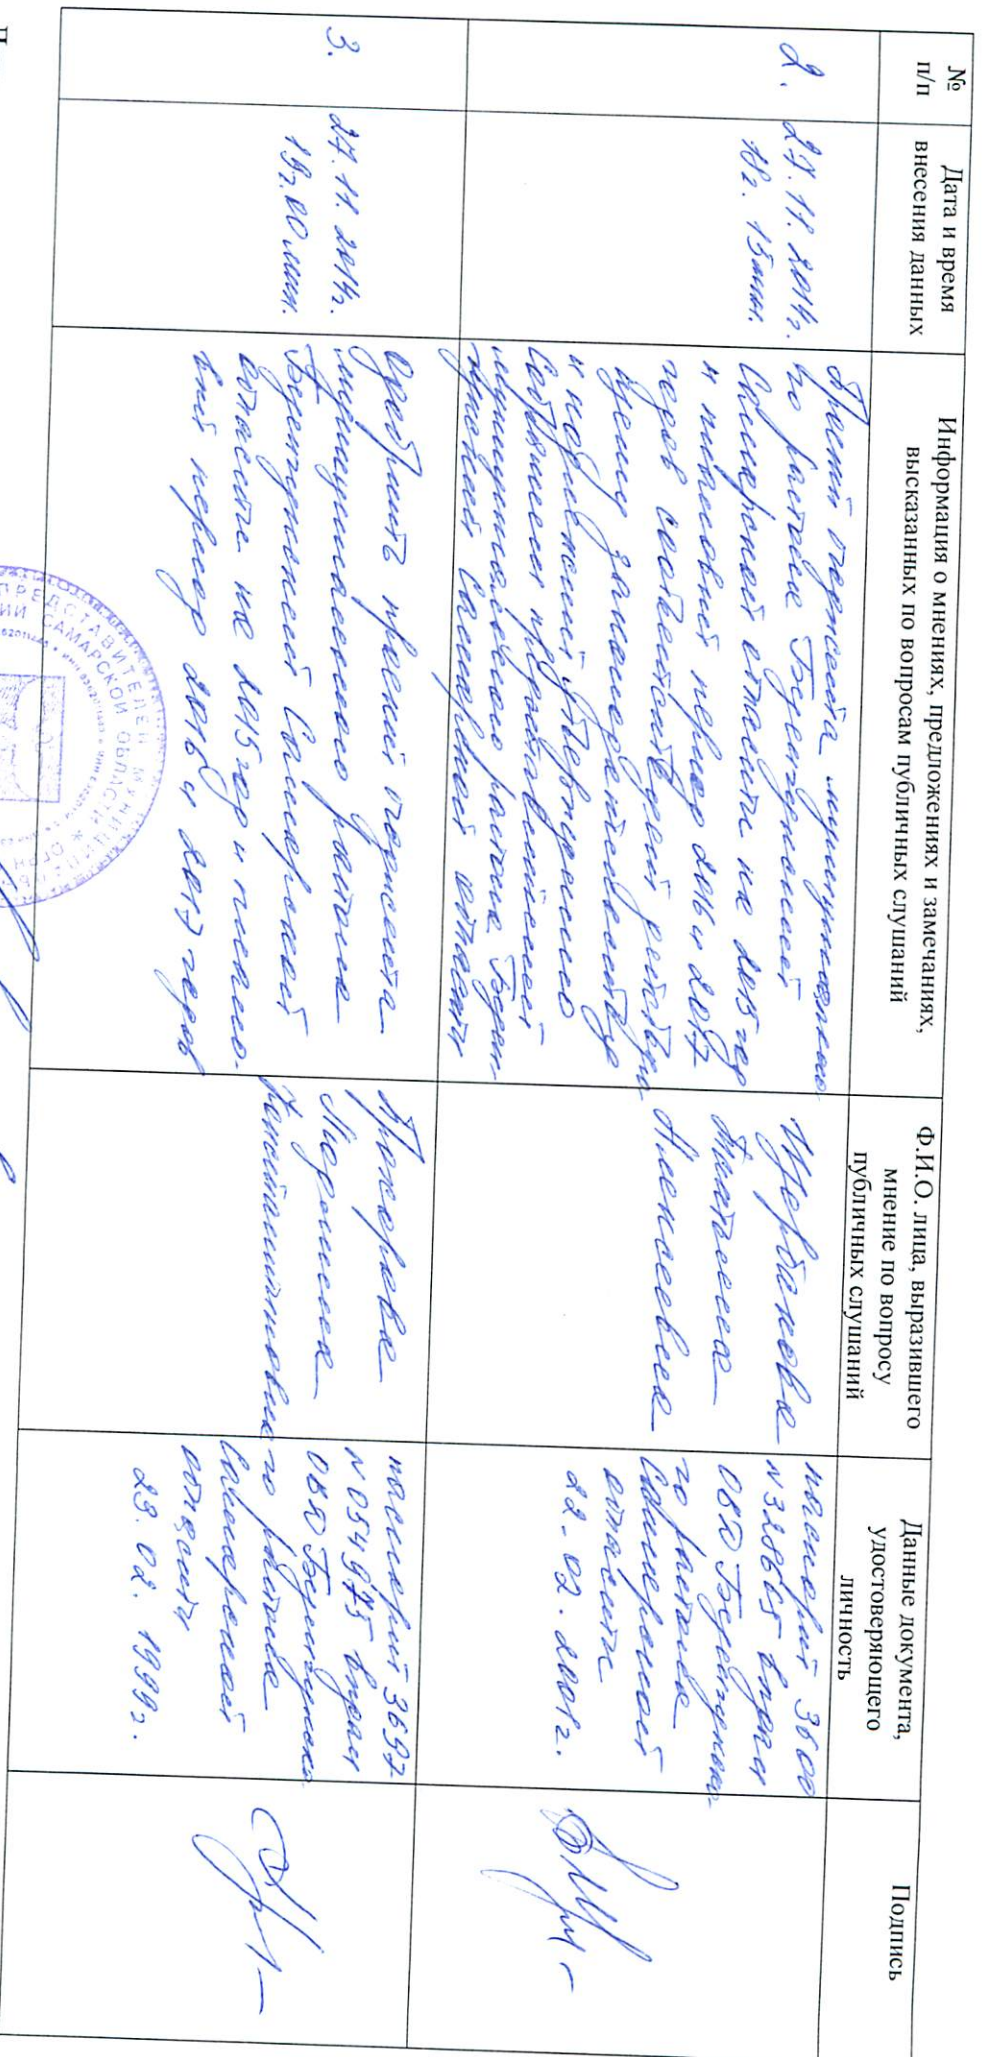 №
п/п
Дата и время
внесения данных
Информация о мнениях, предложениях и замечаниях,
высказанных по вопросам публичных слушаний
Ф.И.О. лица, выразившего
мнение по вопросу
публичных слушаний
Данные документа,
удостоверяющего
личность
Подпись
2.
27.11.2014г.
18г. 15мин.
Проект бюджета муниципального
района Безенчукский
Самарской области на 2015 год
и плановый период 2016 и 2017
годов соответствует
закономерательству
и подлежит утверждению
Собранием представителей
муниципального района Безен-
чукский Самарской области
Щербакова
Алексеевна
паспорт 3600
N328665 выдан
ОВД Безенчукско-
го района
Самарской
области
22.02.2001г.
3.
27.11.2014г.
19г.00мин.
Одобрить проект бюджета
муниципального района
Безенчукский Самарской
области на 2015 год и плано-
вый период 2016 и 2017 годов
Людмила
Константиновна
паспорт 3697
N054975 выдан
ОВД Безенчукско-
го района
Самарской
области
23.02.1999г.
ПРЕДСТАВИТЕЛЕЙ МУНИЦИПАЛЬН
САМАРСКОЙ ОБЛАСТИ
ОГРН